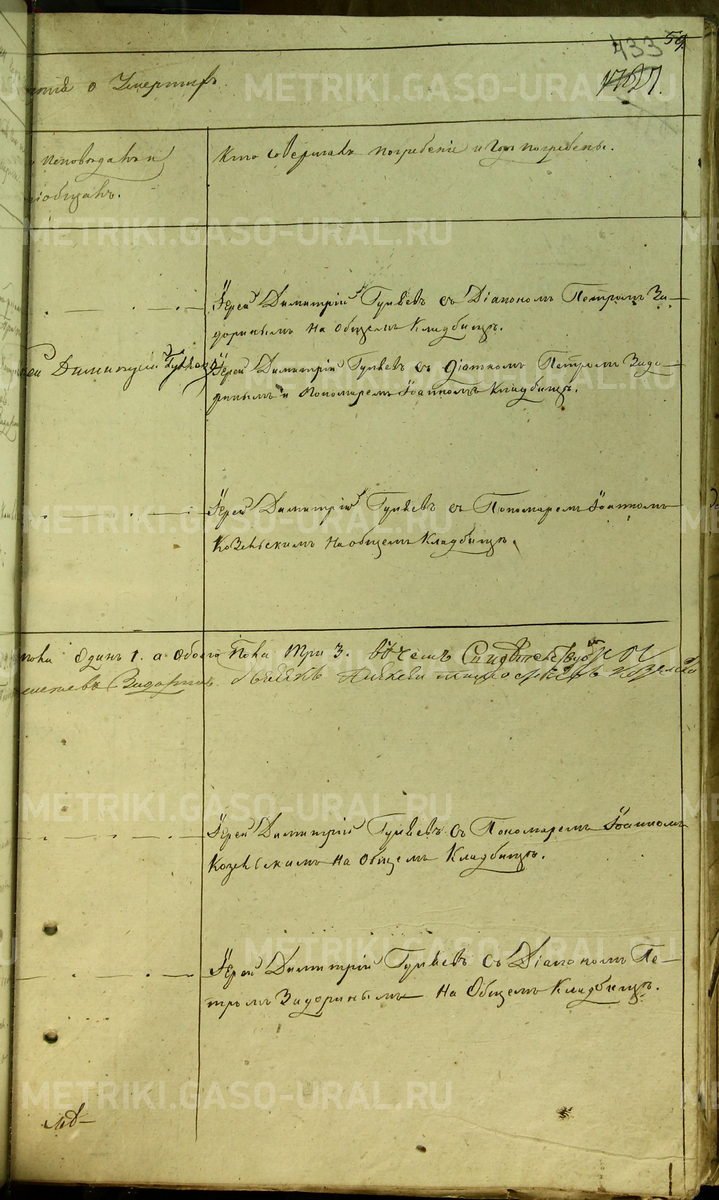 59
433
о Умершихъ
исповѣдалъ и
Кто совершалъ погребеніе и гдѣ погребены.
Іерей Димитрій Гуляевъ съ Діакономъ Петромъ За-
доринымъ на Общемъ Кладбищѣ.
Димитрій Гуляевъ
Іерей Димитрій Гуляевъ съ Діакономъ Петромъ Задо-
ринымъ и Пономаремъ Іоанномъ Кладбищѣ.
Іерей Димитрій Гуляевъ съ Пономаремъ Іоанномъ
Козельскимъ на общемъ Кладбищѣ.
пола Одинъ 1. а Обоего Пола три 3. Въ чемъ
Задоринъ
Іерей Димитрій Гуляевъ съ Пономаремъ Іоанномъ
Козельскимъ на Общемъ Кладбищѣ.
Іерей Димитрій Гуляевъ съ Діакономъ Пе-
тромъ Задоринымъ на Общемъ Кладбищѣ.
METRIKI.GASO-URAL.RU